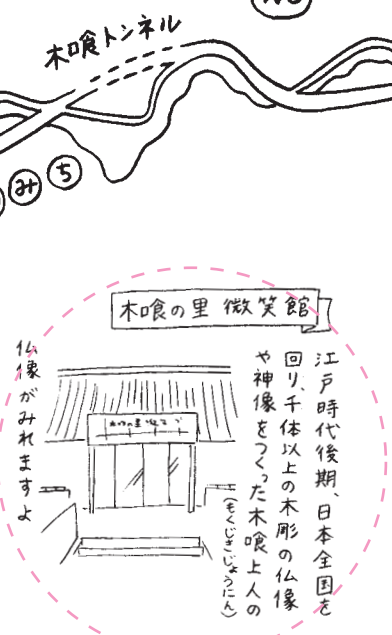 木喰トンネル
み ち
木喰の里 微笑館
江戸時代後期、日本全国を
回り、千体以上の木彫の仏像
や神像をつくった木喰上人の
(もくじきしょうにん)
仏像がみれますよ